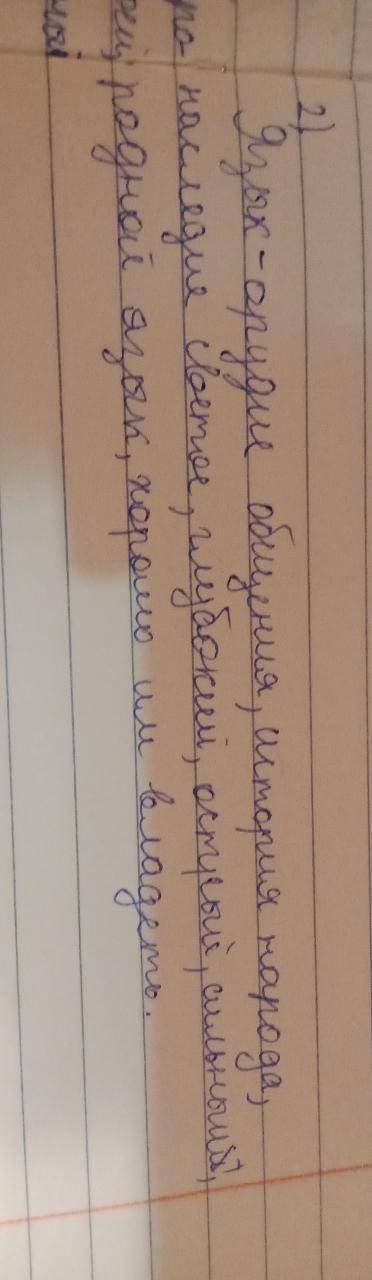 2)
Язык - орудие общения, история народа,
наследие светое, глубокий, острый, сильный,
родной язык, хорошо им владеть.